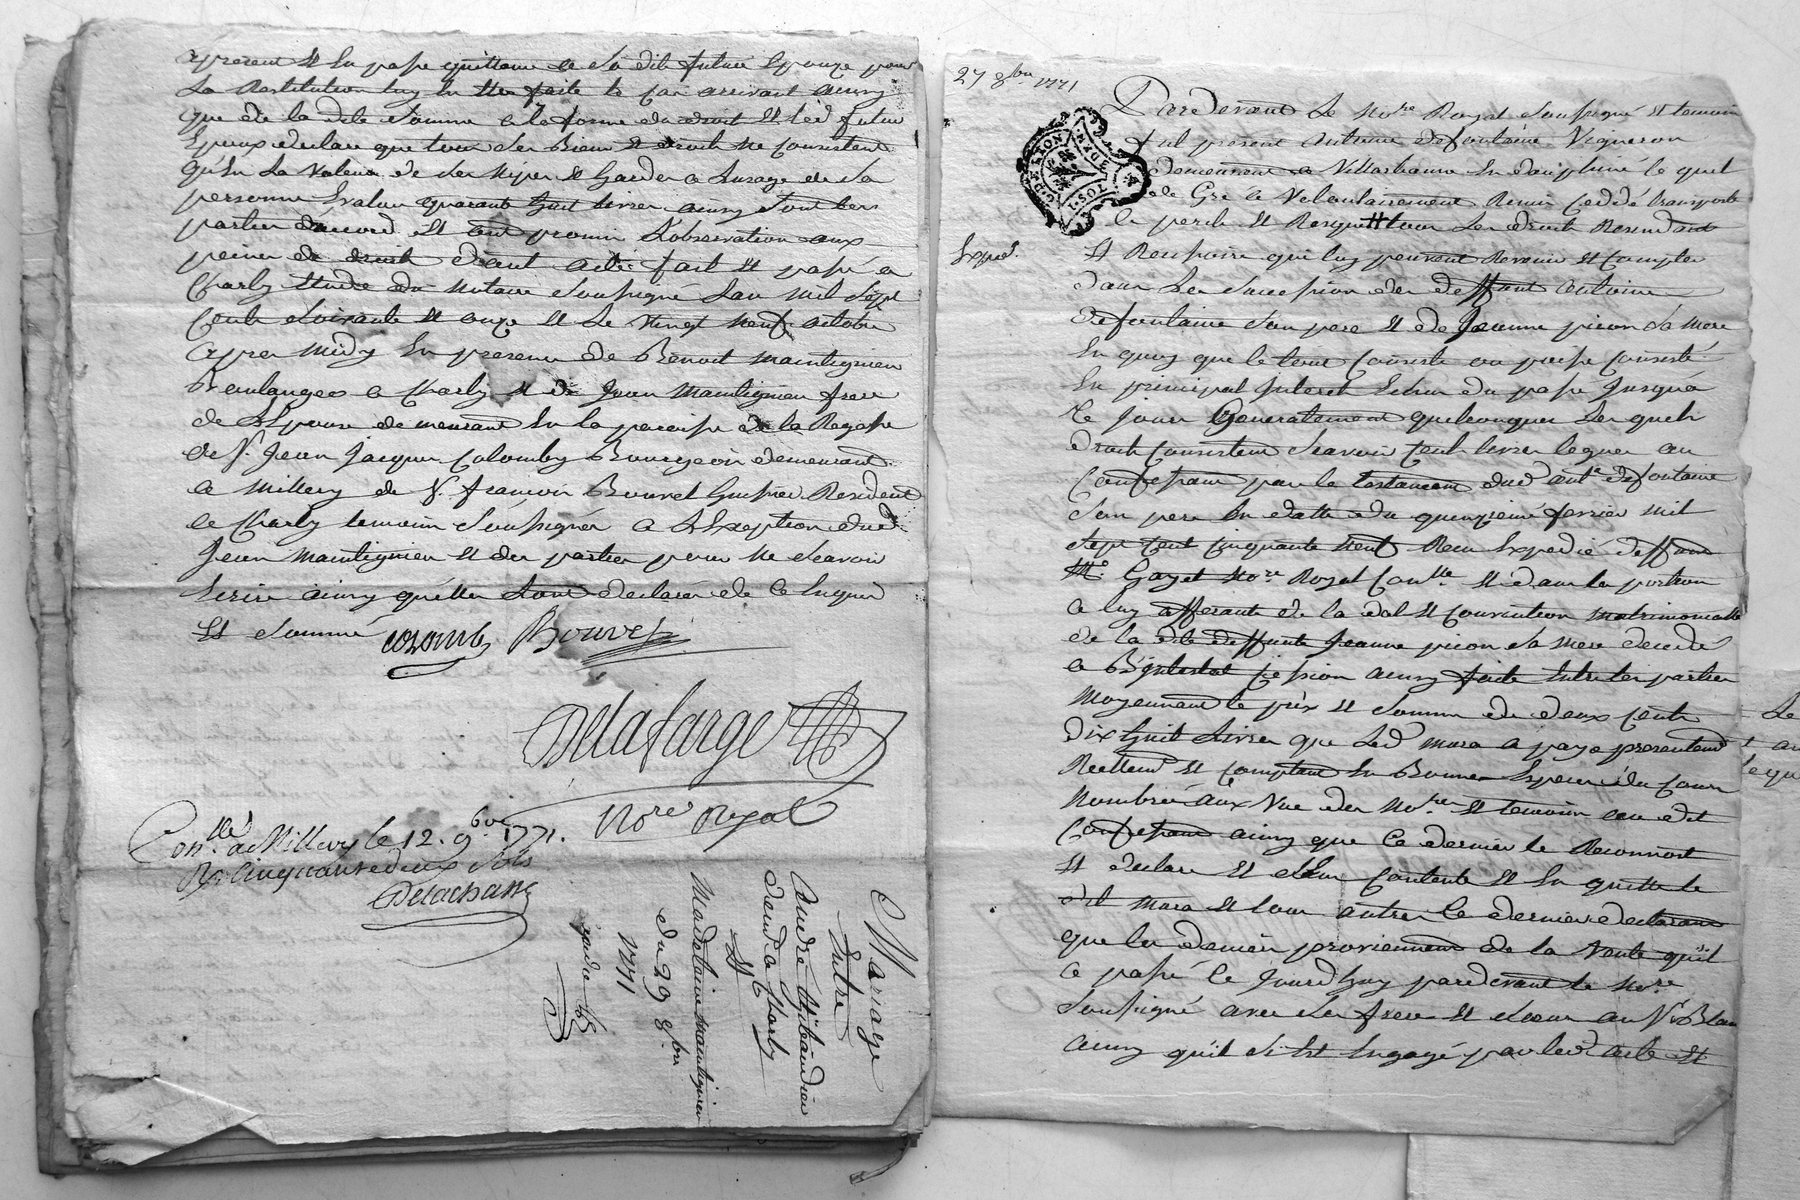 present et en passe quittance a sa dite future Epouze pour
La Restitution luy en etre faite le cas arrivant ainsy
que de la dite somme a la forme du droit et led futur
Epoux declare que tous ses Biens et droits ne consistent
qu'En La Valeur de ses nipes et hardes a Lusage de sa
personne Evalué quarante huit livres ainsy sont les
parties d'accord et ont promis L'observation aux
peines de droit dont acte fait et passé a
Charly Etude du notaire Soussigné L'an mil Sept
Cents Soixante et onze et Le Vingt neuf octobre
apres midy En presence de Benoit mantignieu
Boulanger a Charly et de Jean Mantignieu frere
de L'Epouse demeurant En la paroisse de la
de Sr. Jean Jacques Colomby Bourgeois demeurant
a Millery de Sr. francois Bouvet huissier Resident
a Charly temoins Soussignés a L'Exeption dud
Jean mantignieu et des parties pour ne scavoir
Ecrire ainsy quelles L'ont declaré de Ce Enquis
Et Sommé colomby Bouvet
Delafarge
Nore Royal
Conllé a Millery le 12. 9bre 1771.
R cinquante deux sols
Delachass
Mariage
Entre
André thibaudier
dend a Charly
Et
Madelaine mantignieu
du 29 8bre
1771
27 8bre 1771
G. DE LYON
I. SOL
Pardevant Le Nore Royal Soussigné et temoins
fut present Antoine defontaine Vigneron
demeurant a Villeurbanne En dauphiné le quel
de Gré a Volontairement Remis Ceddé transporté
a peril et Risque tous les droits Rescindant
Exped.
Et Rescisoire qui luy peuvent Revenir et Compter
dans Les Succession des deffunt antoine
defontaine Son pere et de Jeanne pion Sa mere
En quoy que le tout Consiste ou puisse Consister
En principal Interet Echus du passé Jusqua
Ce Jour Generalement quelconques Les quels
droits Consistent Scavoir Cent livres leguer au
Confessant par le testament dud ant. defontaine
Son pere En datte du quinzieme fevrier mil
Sept Cent Cinquante neuf Recu Expedié deffunt
Me Gayet Nore Royal Conlle et dans la portion
a luy afferante de la dot et Convention matrimonialle
de la dite deffunte Jeanne pion Sa mere decedé
a Cession ainsy faite Entre les parties
Moyennant le prix et Somme de deux Cents
Dix huit Livres que Led mara a payé presentement
Reellemt et Comptant En Bonnes Especes du Cours
Nombrée aux Vue des Nore et temoins aud
Confessant ainsy que Ce dernier le Reconnoit
Et declare Et s'En Contente et En quitte le
dit mara et tous autres Ce dernier declarant
que les deniers proviennent de la Vente qu'il
a passé Ce Jourdhuy pardevant le Nore
Soussigné avec Ses frere et Soeur au Sr Blanc
ainsy qu'il s'Est Engagé par led acte Et